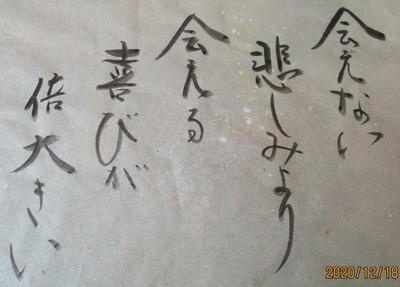 会えない
悲しみより
会える
喜びが
倍大きい
2020/12/18